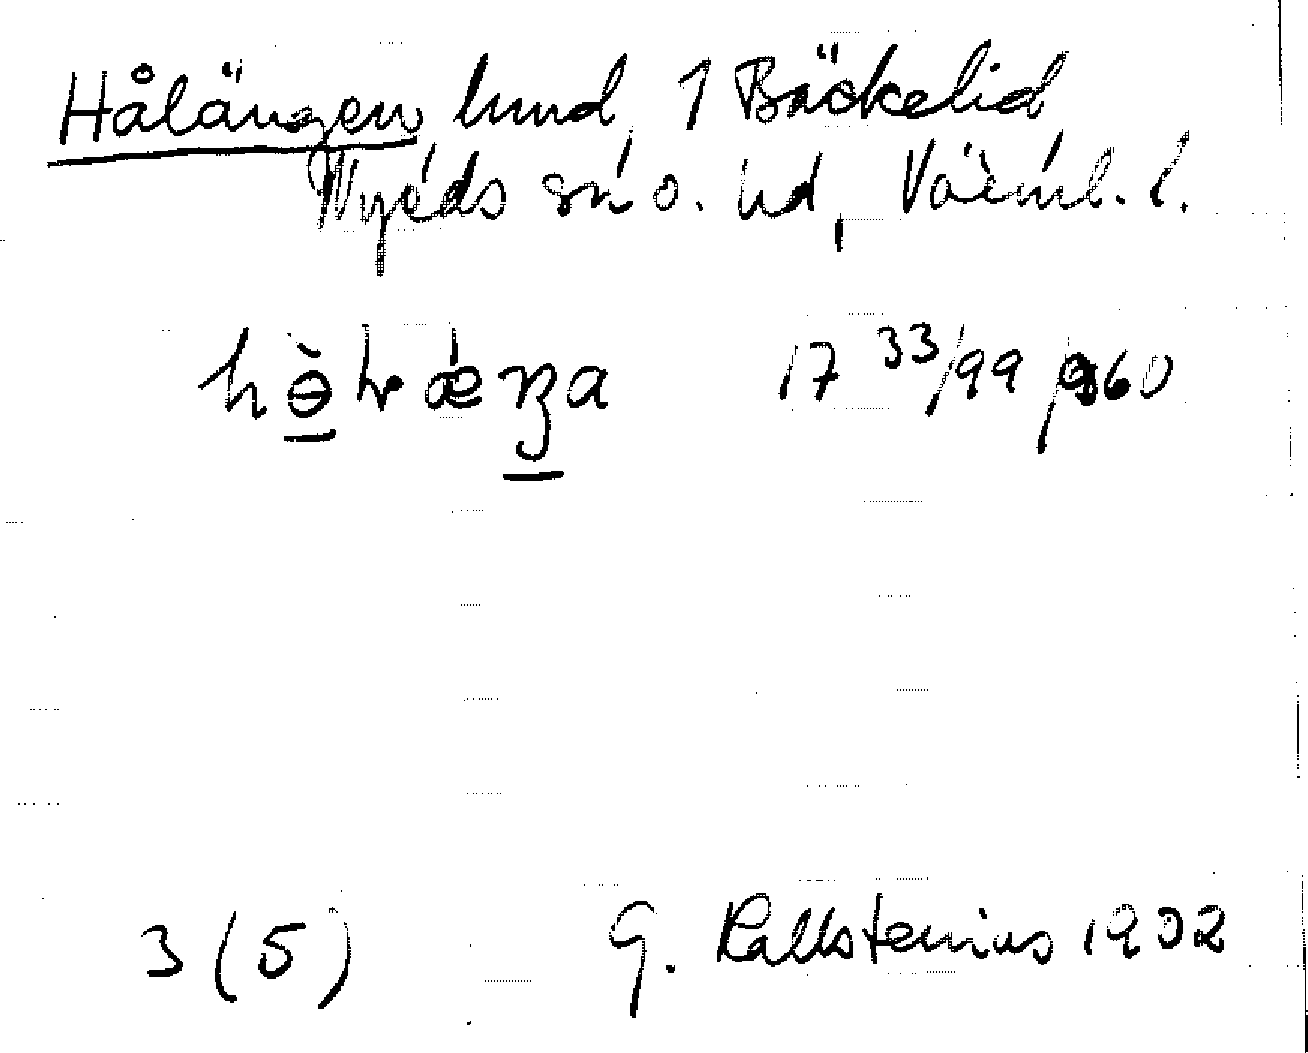 Hålängen lund, 1 Bäckelid
Nyeds sn o. hd, Värml. l.
17 33/99 960
3 (5) G. Kallstenius 1902